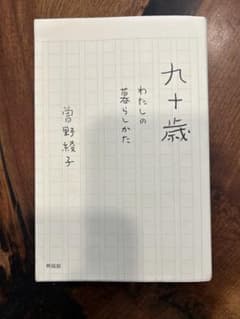 九十歳
わたしの
暮らしかた
曽野綾子